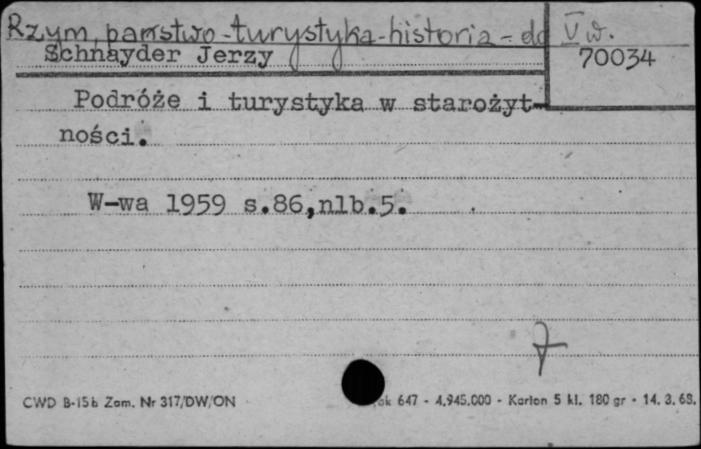 Rzym, państwo - turystyka - historia - do V w.
Schnayder Jerzy
70034
Podróże i turystyka w starożyt-
ności.
W-wa 1959 s.86,nlb.5.
CWD B-15b Zam. Nr 317/DW/ON
647 - 4.945.000 - Karton 5 kl. 180 gr - 14. 3. 68.